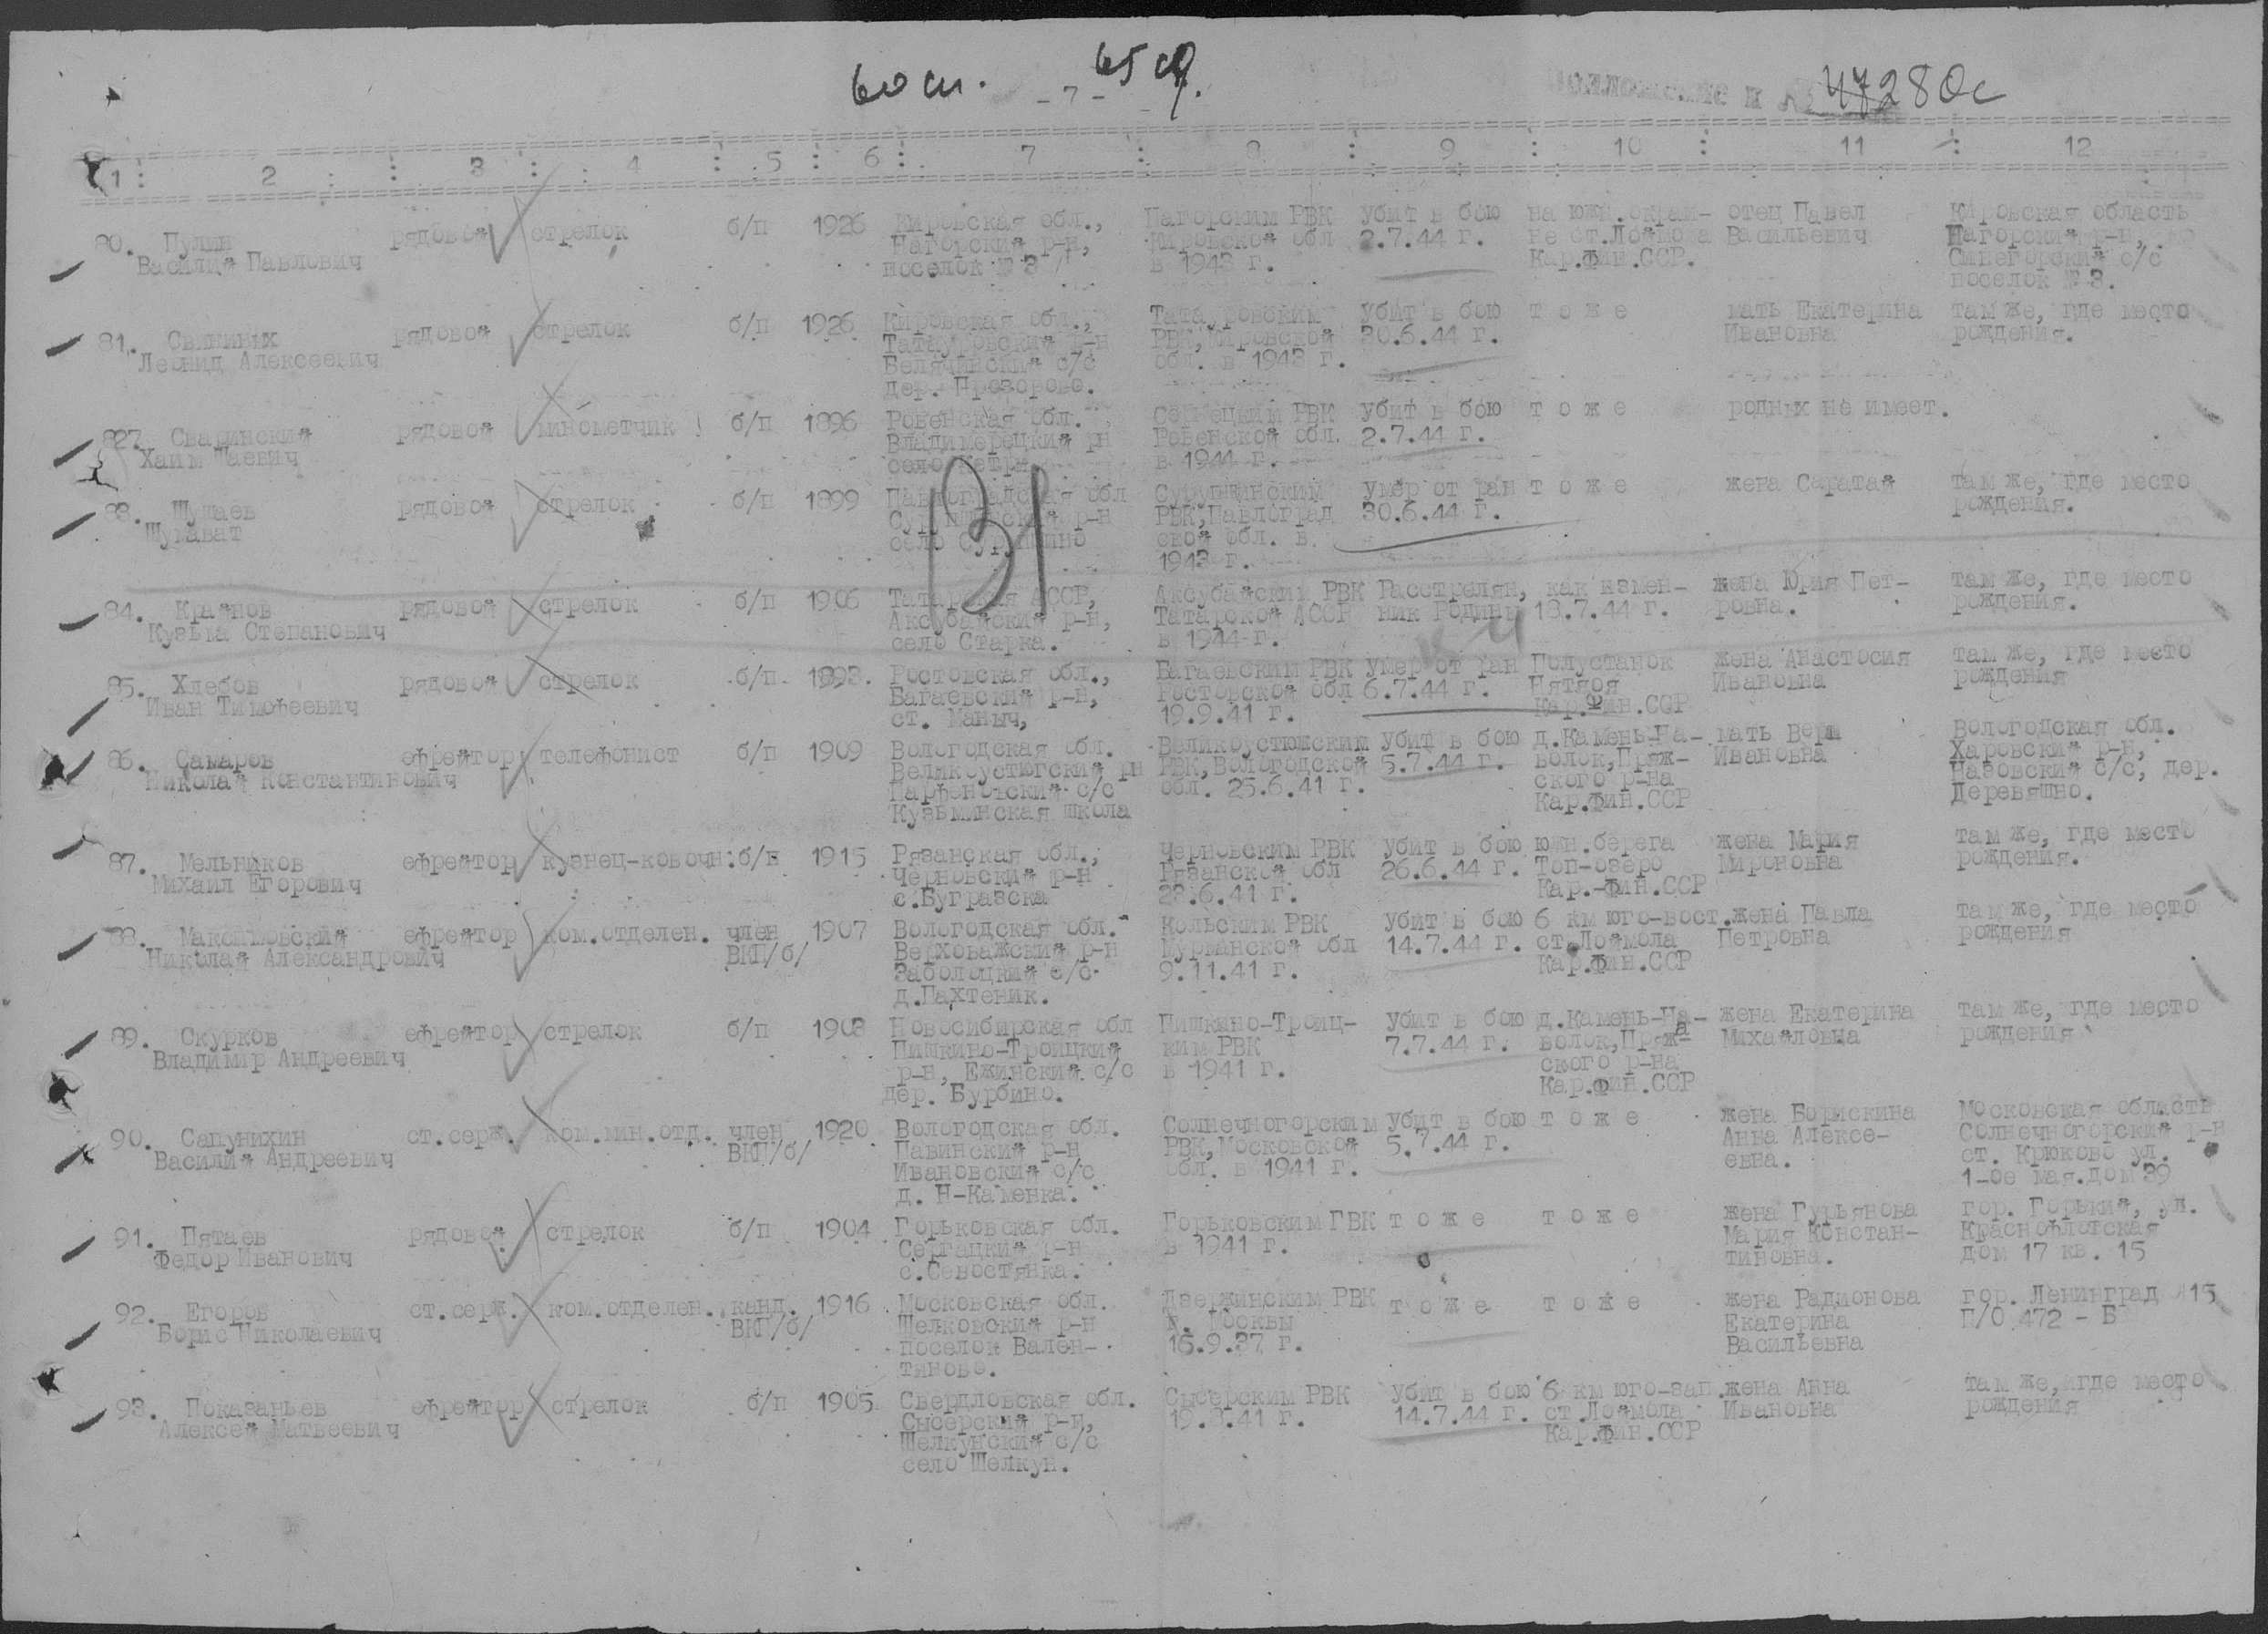 60 сп. -7- 65 сд.
47280с
1 : 2 : 3 : 4 : 5 : 6 : 7 : 8 : 9 : 10 : 11 : 12
80. Пулин рядовой стрелок б/п 1926 Кировская обл., Нагорским РВК убит в бою на южн.окраи- отец Павел Кировская область
Василий Павлович Нагорский р-н, Кировской обл 2.7.44 г. не ст.Лоймола Васильевич Нагорский р-н,
поселок № 3 в 1943 г. Кар.фин.ССР. Синегорский с/с
поселок № 3.
81. рядовой стрелок б/п 1926 Кировская обл., Татауровским убит в бою тоже мать Екатерина там же, где место
Леонид Алексеевич Татауровский р-н РВК, Кировской 30.6.44 г. Ивановна рождения.
с/с обл. в 1943 г.
дер. Прозорово.
82. Сваринский рядовой минометчик б/п 1896 Ровенская обл. РВК убит в бою тоже родных не имеет.
Хаим Владимерецкий рн Ровенской обл. 2.7.44 г.
село в 1944 г.
83. рядовой стрелок б/п 1899 Павлоградская обл умер от ран тоже жена Саратай там же, где место
р-н РВК, Павлоград 30.6.44 г. рождения.
село ской обл. в
1943 г.
84. Крайнов рядовой стрелок б/п 1906 Татарская АССР, Аксубайским РВК Расстрелян, как измен- жена Юрия Пет- там же, где место
Кузьма Степанович Аксубайский р-н, Татарской АССР ник Родины 18.7.44 г. ровна. рождения.
село Старка. в 1944 г.
85. Хлебов рядовой стрелок б/п 1893. Ростовская обл., Багаевским РВК умер от ран Полустанок жена Анастосия там же, где место
Иван Тимофеевич Багаевский р-н, Ростовской обл 6.7.44 г. Нятяоя Ивановна рождения
ст. Маныч, 19.9.41 г. Кар.Фин.ССР
86. Самаров ефрейтор телефонист б/п 1909 Вологодская обл. Великоустюжским убит в бою д.Камень-На- мать Вера Вологодская обл.
Николай Константинович Великоустюгский рн РВК, Вологодской 5.7.44 г. волок, Пряж- Ивановна Харовский р-н,
с/с обл. 25.6.41 г. ского р-на с/с, дер.
Кузьминская школа Кар.Фин.ССР Деревяшно.
87. Мельников ефрейтор кузнец-ковочн. б/п 1915 Рязанская обл., Черновским РВК убит в бою южн.берега жена Мария там же, где место
Михаил Егорович Черновский р-н Рязанской обл 26.6.44 г. Топ-озеро Мироновна рождения.
23.6.41 г. Кар.-Фин.ССР
88. Максимовский ефрейтор ком.отделен. член 1907 Вологодская обл. Кольским РВК убит в бою 6 км юго-вост. жена Павла там же, где место
Николай Александрович ВКП/б/ Верховажский р-н Мурманской обл 14.7.44 г. ст.Лоймола Петровна рождения
Заболоцкий с/с 9.11.41 г. Кар.Фин.ССР
д.Пахтеник.
89. Скурков ефрейтор стрелок б/п 1903 Новосибирская обл Пишкино-Троиц- убит в бою д.Камень-На- жена Екатерина там же, где место
Владимир Андреевич Пишкино-Троицкий ким РВК 7.7.44 г. волок, Пряж Михайловна рождения
р-н, Ежинский с/с в 1941 г. ского р-на
дер. Бурбино. Кар.Фин.ССР
90. Сапунихин ст.серж. ком.мин.отд. член 1920 Вологодская обл. Солнечногорским убит в бою тоже жена Борискина Московская область
Василий Андреевич ВКП/б/ Павинский р-н РВК, Московской 5.7.44 г. Анна Алексе- Солнечногорский р-н
Ивановский с/с обл. в 1941 г. евна. ст. Крюково ул.
д. Н-Каменка. 1-ое мая. дом 39
91. Пятаев рядовой стрелок б/п 1904 Горьковская обл. Горьковским ГВК тоже тоже жена Гурьянова гор. Горький, ул.
Федор Иванович Сергацкий р-н в 1941 г. Мария Констан- Краснофлотская
с.Севостянка. тиновна. дом 17 кв. 15
92. Егоров ст.серж. ком.отделен. канд. 1916 Московская обл. Дзержинским РВК тоже тоже жена Радионова гор. Ленинград 15
Борис Николаевич ВКП/б/ Щелковский р-н г. Москвы Екатерина П/О 472 - Б
поселок Вален- 16.9.37 г. Васильевна
тиново.
93. Показаньев ефрейтор стрелок б/п 1905 Свердловская обл. Сысерским РВК убит в бою 6 км юго-зап. жена Анна там же, где место
Алексей Матвеевич Сысерский р-н, 14.7.44 г. ст.Лоймола Ивановна рождения
Шелкунский с/с Кар.Фин.ССР
село Шелкун.